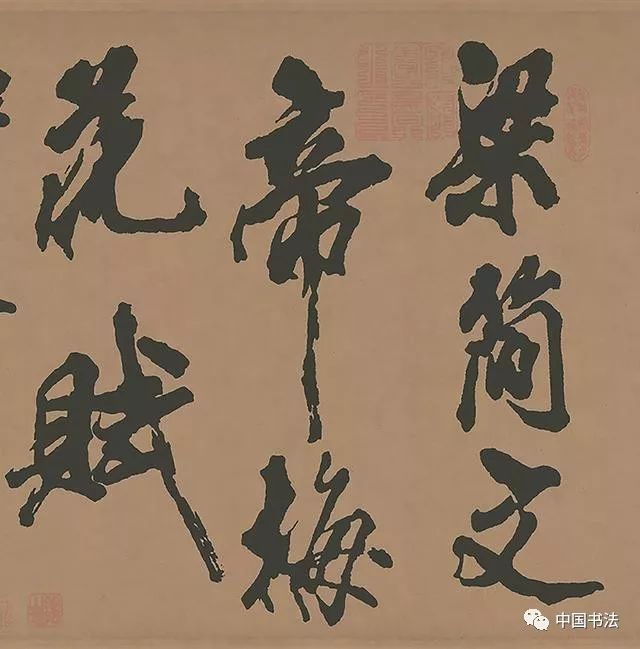 梁简文
帝梅
花赋
中国书法